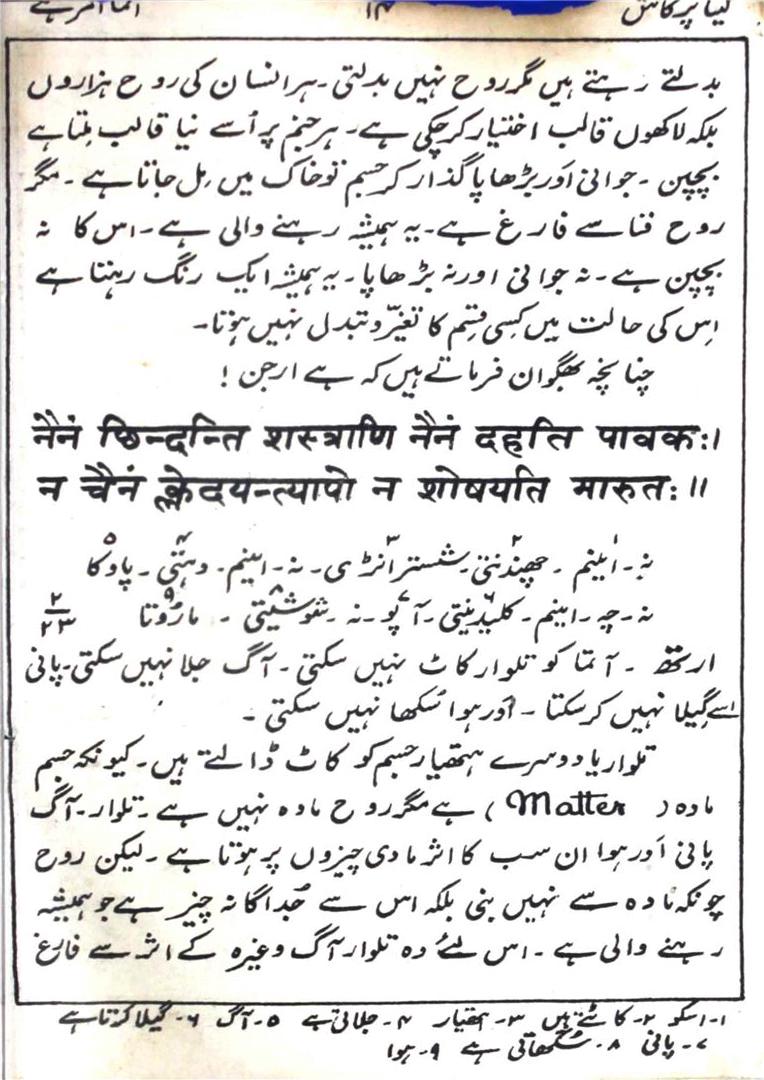 گیتا پرکاش ۱۴ آتما امر ہے
بدلتے رہتے ہیں مگر روح نہیں بدلتی۔ ہر انسان کی روح ہزاروں
بلکہ لاکھوں قالب اختیار کر چکی ہے۔ ہر جنم پر اُسے نیا قالب مِلتا ہے
بچپن۔ جوانی اَور بڑھاپا گذار کر جسم تو خاک میں مِل جاتا ہے۔ مگر
روح فنا سے فارغ ہے۔ یہ ہمیشہ رہنے والی ہے۔ اس کا نہ
بچپن ہے۔ نہ جوانی اور نہ بڑھاپا۔ یہ ہمیشہ ایک رنگ رہتا ہے
اِس کی حالت میں کِسی قِسِم کا تغیّر و تبدل نہیں ہوتا۔
چنانچہ بھگوان فرماتے ہیں کہ ہے ارجن!
नैनं छिन्दन्ति शस्त्राणि नैनं दहति पावकः।
न चैनं क्लेदयन्त्यापो न शोषयति मारुतः॥
نہ۔ اینم۱۔ چھِندنتی۲۔ شسترانڑی۳۔ نہ۔ اینم۔ دہتی۴۔ پاوکا۵
نہ۔ چہ۔ اینم۔ کلیدینیتی۶۔ آپو۷۔ نہ۔ شوشیتی۸۔ مارُوتا۹ ۲/۲۳
ارتھ۔ آتما کو تلوار کاٹ نہیں سکتی۔ آگ جلا نہیں سکتی۔ پانی
اسے گِیلا نہیں کر سکتا۔ اَور ہوا سُکھا نہیں سکتی۔
تلوار یا دوسرے ہتھیار جسم کو کاٹ ڈالتے ہیں۔ کیونکہ جسم
مادہ (Matter) ہے مگر روح مادہ نہیں ہے۔ تلوار۔ آگ
پانی اَور ہوا ان سب کا اثر مادی چیزوں پر ہوتا ہے۔ لیکن روح
چونکہ مادہ سے نہیں بنی بلکہ اس سے جُداگانہ چیز ہے جو ہمیشہ
رہنے والی ہے۔ اس لئے وہ تلوار آگ وغیرہ کے اثر سے فارغ
۱۔ اسکو ۲۔ کاٹتے ہیں ۳۔ ہتھیار ۴۔ جلاتی ہے ۵۔ آگ ۶۔ گیلا کرتا ہے
۷۔ پانی ۸۔ سُکھاتی ہے ۹۔ ہوا